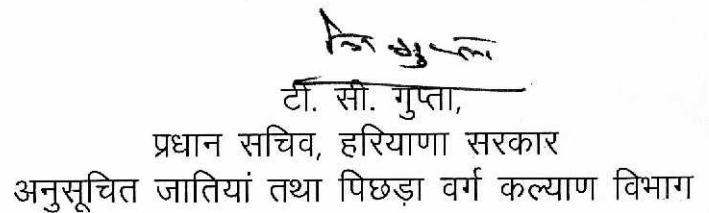 टी. सी. गुप्ता,
प्रधान सचिव, हरियाणा सरकार
अनुसूचित जातियां तथा पिछड़ा वर्ग कल्याण विभाग